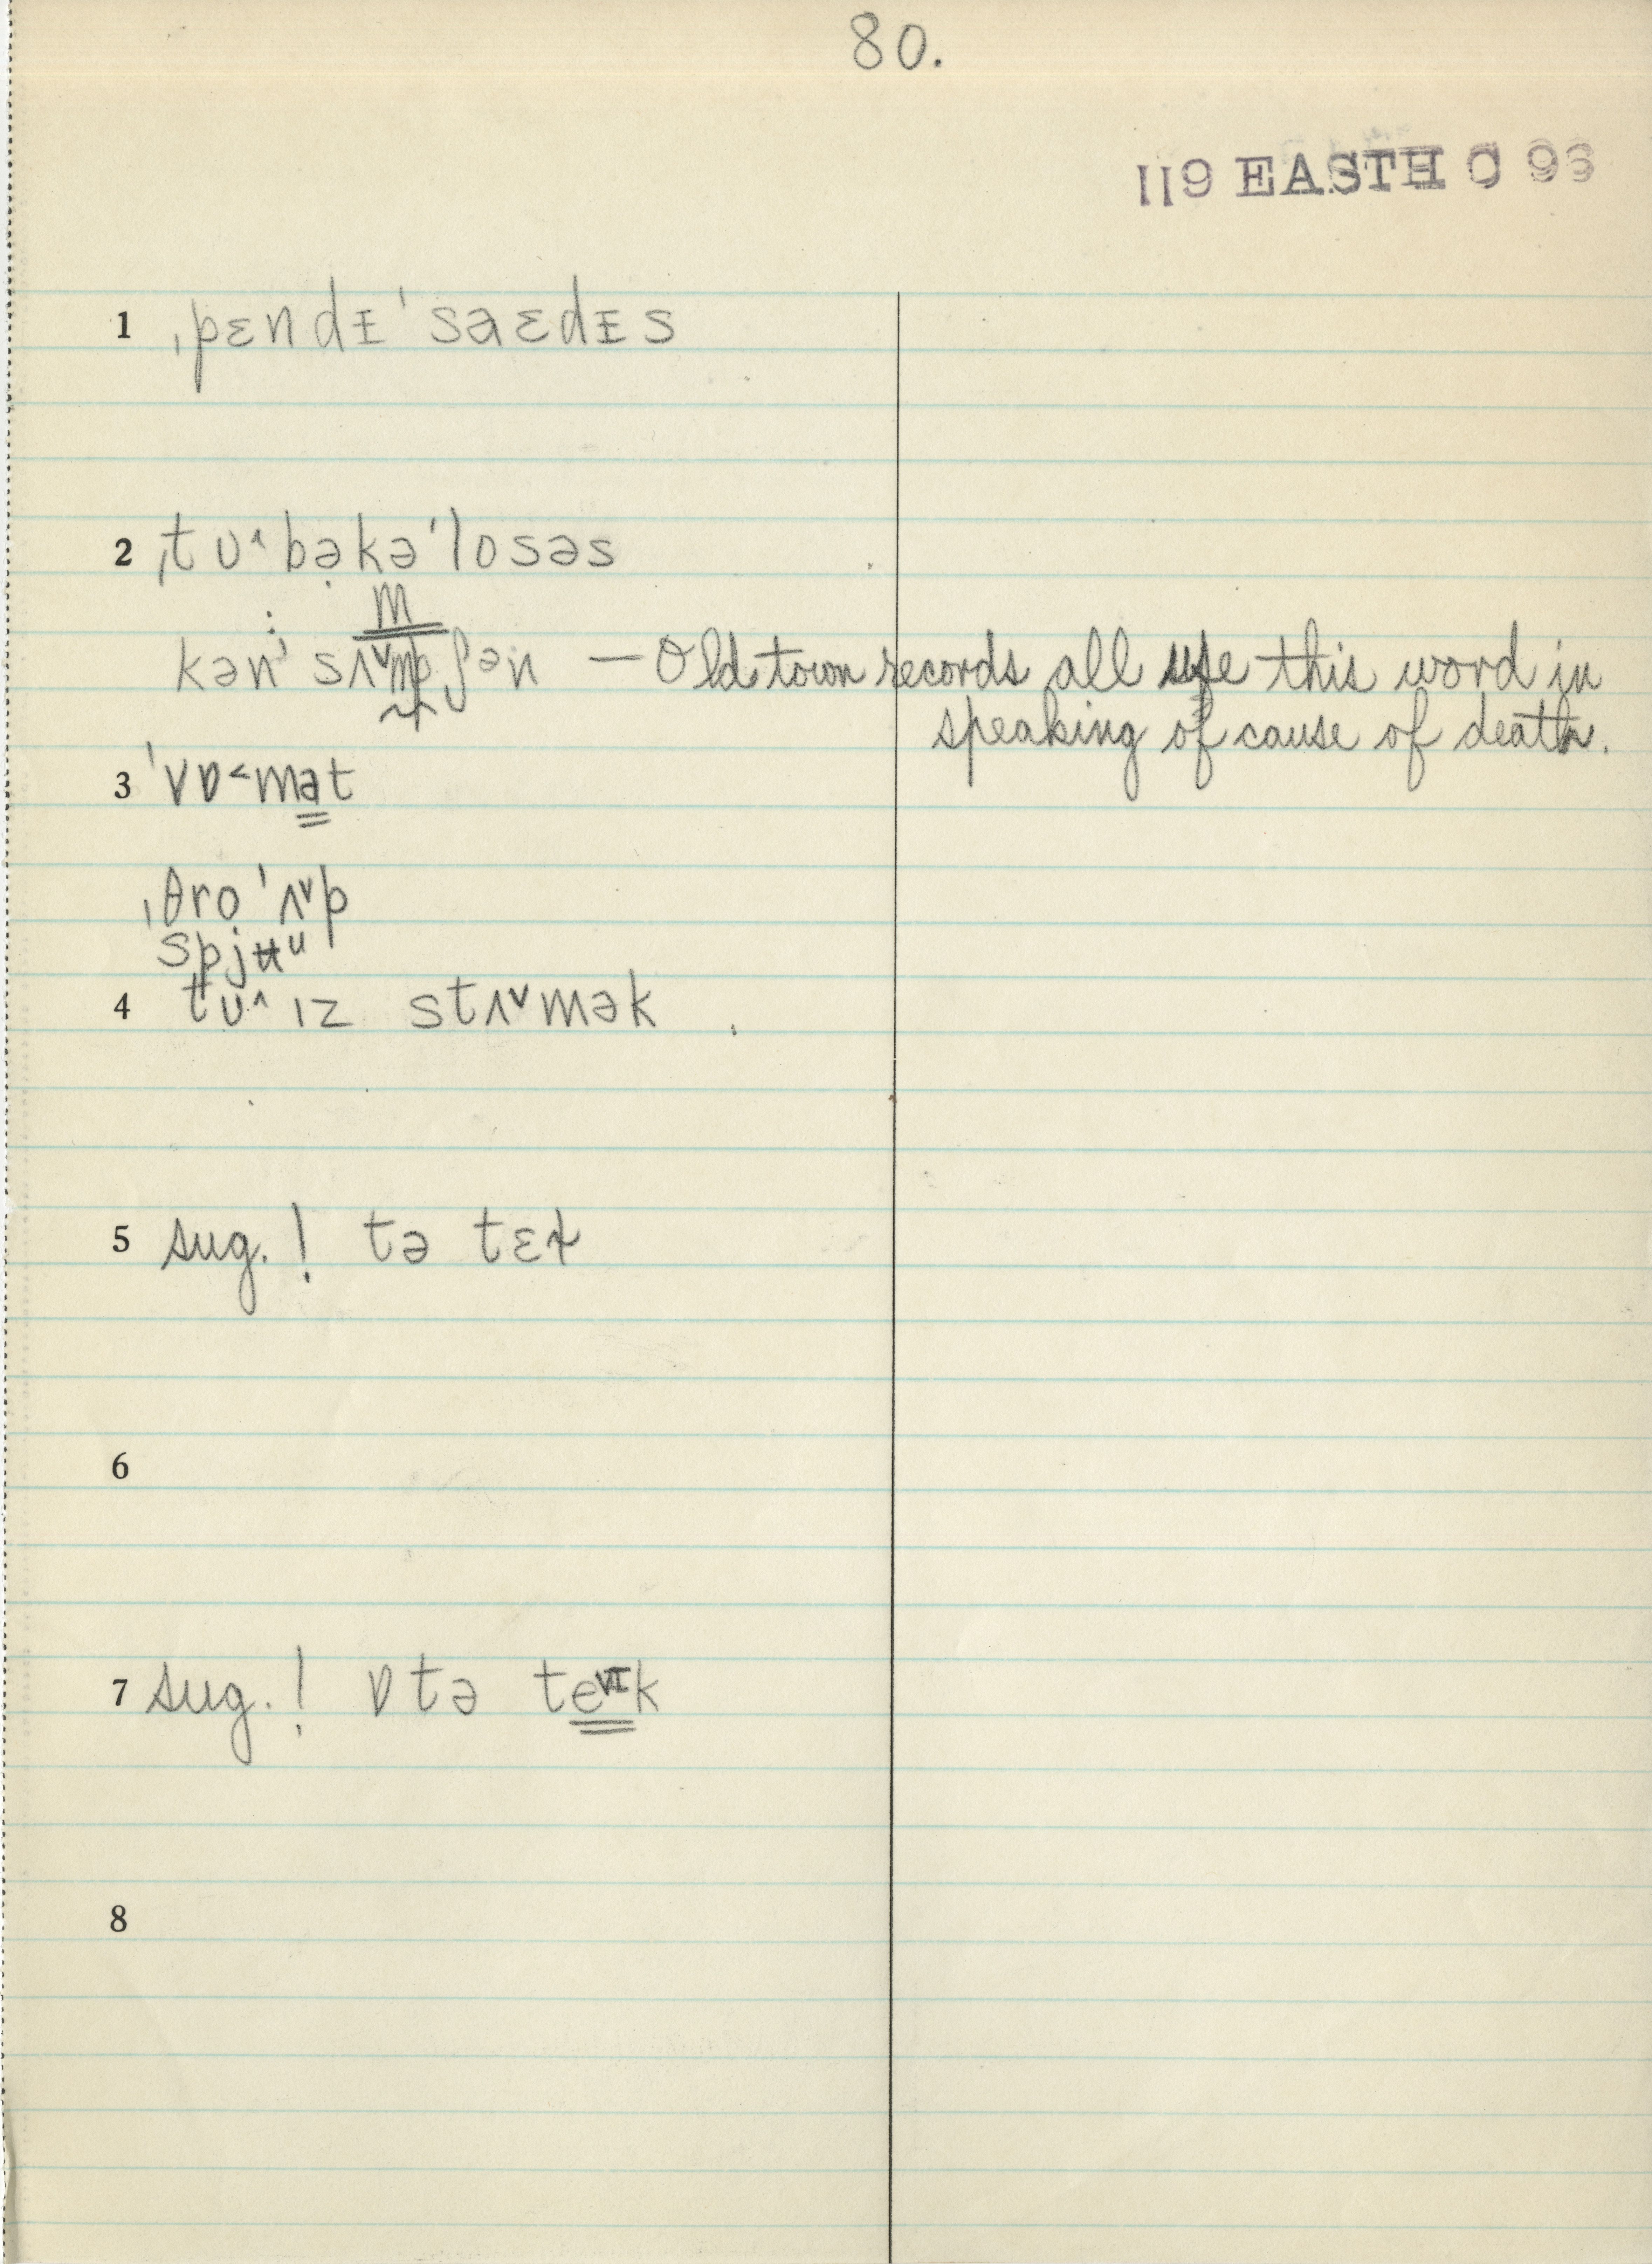 80.
119 EASTH C 93
1 ˌpɛndɪˈsaɛdɪs
2 ˌtʊ˄bəkəˈlosəs
m
kənˈsʌ˅mpʃən — Old town records all use this word in
speaking of cause of death.
3 ˈvɒ˂mət
ˌθroˈʌ˅p
spjʉu
4 tʊ˄ ɪz stʌ˅mək
5 sug.! tə tɛɫ
6
7 sug.! ɒ tə te˅ɪk
8